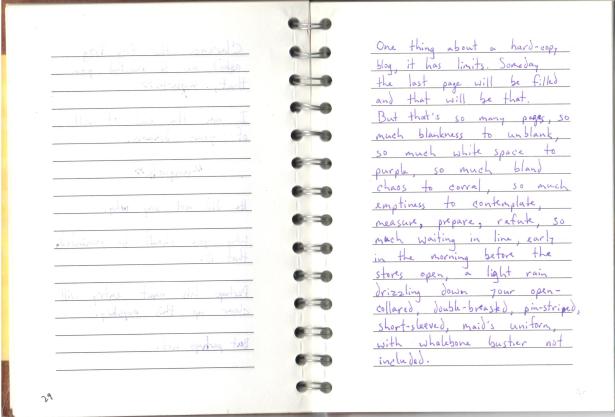 One thing about a hard-copy
blog, it has limits. Someday
the last page will be filled
and that will be that.
But that's so many pages, so
much blankness to unblank,
so much white space to
purple, so much bland
chaos to corral, so much
emptiness to contemplate,
measure, prepare, refute, so
much waiting in line, early
in the morning before the
stores open, a light rain
drizzling down your open-
collared, double-breasted, pin-striped,
short-sleeved, maid's uniform,
with whalebone bustier not
included.
29